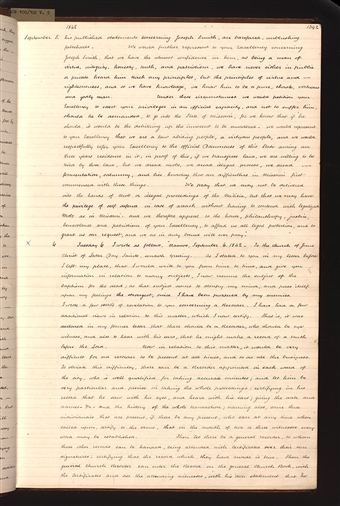 1842 1842
September 5 his published statements concerning Joseph Smith, are barefaced, unblushing
falsehoods. We would further represent to your Excellency concerning
Joseph Smith, that we have the utmost confidence in him, as being a man of
virtue, integrity, honesty, truth, and patriotism; we have never either in public
or private heard him teach any principles, but the principles of virtue and
righteousness, and so we have knowledge, we know him to be a pure, chaste, virtuous
and godly man. Under these circumstances we would petition your
Excellency to exert your privileges in an official capacity, and not to suffer him,
should he be demanded, to go into the State of Missouri; for we know that if he
should, it would be the delivering up the innocent to be murdered. We would represent
to your Excellency that we are a law abiding people, a virtuous people, and we would
respectfully refer your Excellency to the official Documents of this State during our
three years residence in it, in proof of this; if we transgress laws, we are willing to be
tried by those laws, but we dread mobs, we dread illegal process, we dread
fermentation, calumny, and lies knowing that our difficulties in Missouri first
commenced with these things. We pray that we may not be delivered
into the hands of mobs or illegal proceedings of the Militia, but that we may have
the privilege of self defence in case of attack without having to contend with legalized
Mobs as in Missouri; and we therefore appeal to the honor, philanthropy, justice,
benevolence and patriotism of your Excellency, to afford us all legal protection, and to
grant us our request, and we as in duty bound will ever pray.
6 Tuesday 6 I wrote as follows, Nauvoo, September 6 1842. To the Church of Jesus
Christ of Latter Day Saints, sendeth greeting. As I stated to you in my letter before
I left my place, that I would write to you from time to time, and give you
information in relation to many subjects, I now resume the subject of the
baptism for the dead; as that subject seems to occupy my mind, and press itself
upon my feelings the strongest, since I have been pursued by my enemies.
I wrote a few words of revelation to you concerning a Recorder. I have had a few
additional views in relation to this matter, which I now certify. That is, it was
declared in my former letter that there should be a Recorder, who should be eye
witness, and also to hear with his ears, that he might make a record of a truth
before the Lord. Now in relation to this matter, it would be very
difficult for one recorder to be present at all times, and to do all the business.
To obviate this difficulty, there can be a Recorder appointed in each ward of
the city, who is well qualified for taking accurate minutes; and let him be
very particular and precise in taking the whole proceedings; certifying in his
record that he saw with his eyes, and heard with his ears; giving the date and
names &c. and the history of the whole transaction; naming also, some three
individuals that are present, if there be any present, who can at any time when
called upon, certify to the same; that in the mouth of two or three witnesses every
word may be established. Then let there be a general recorder, to whom
these other records can be handed, being attended with certificates over their own
signatures; certifying that the record which they have made is true. Then the
general Church Recorder can enter the record on the general Church Book, with
the certificates and all the attending witnesses, with his own statement that he